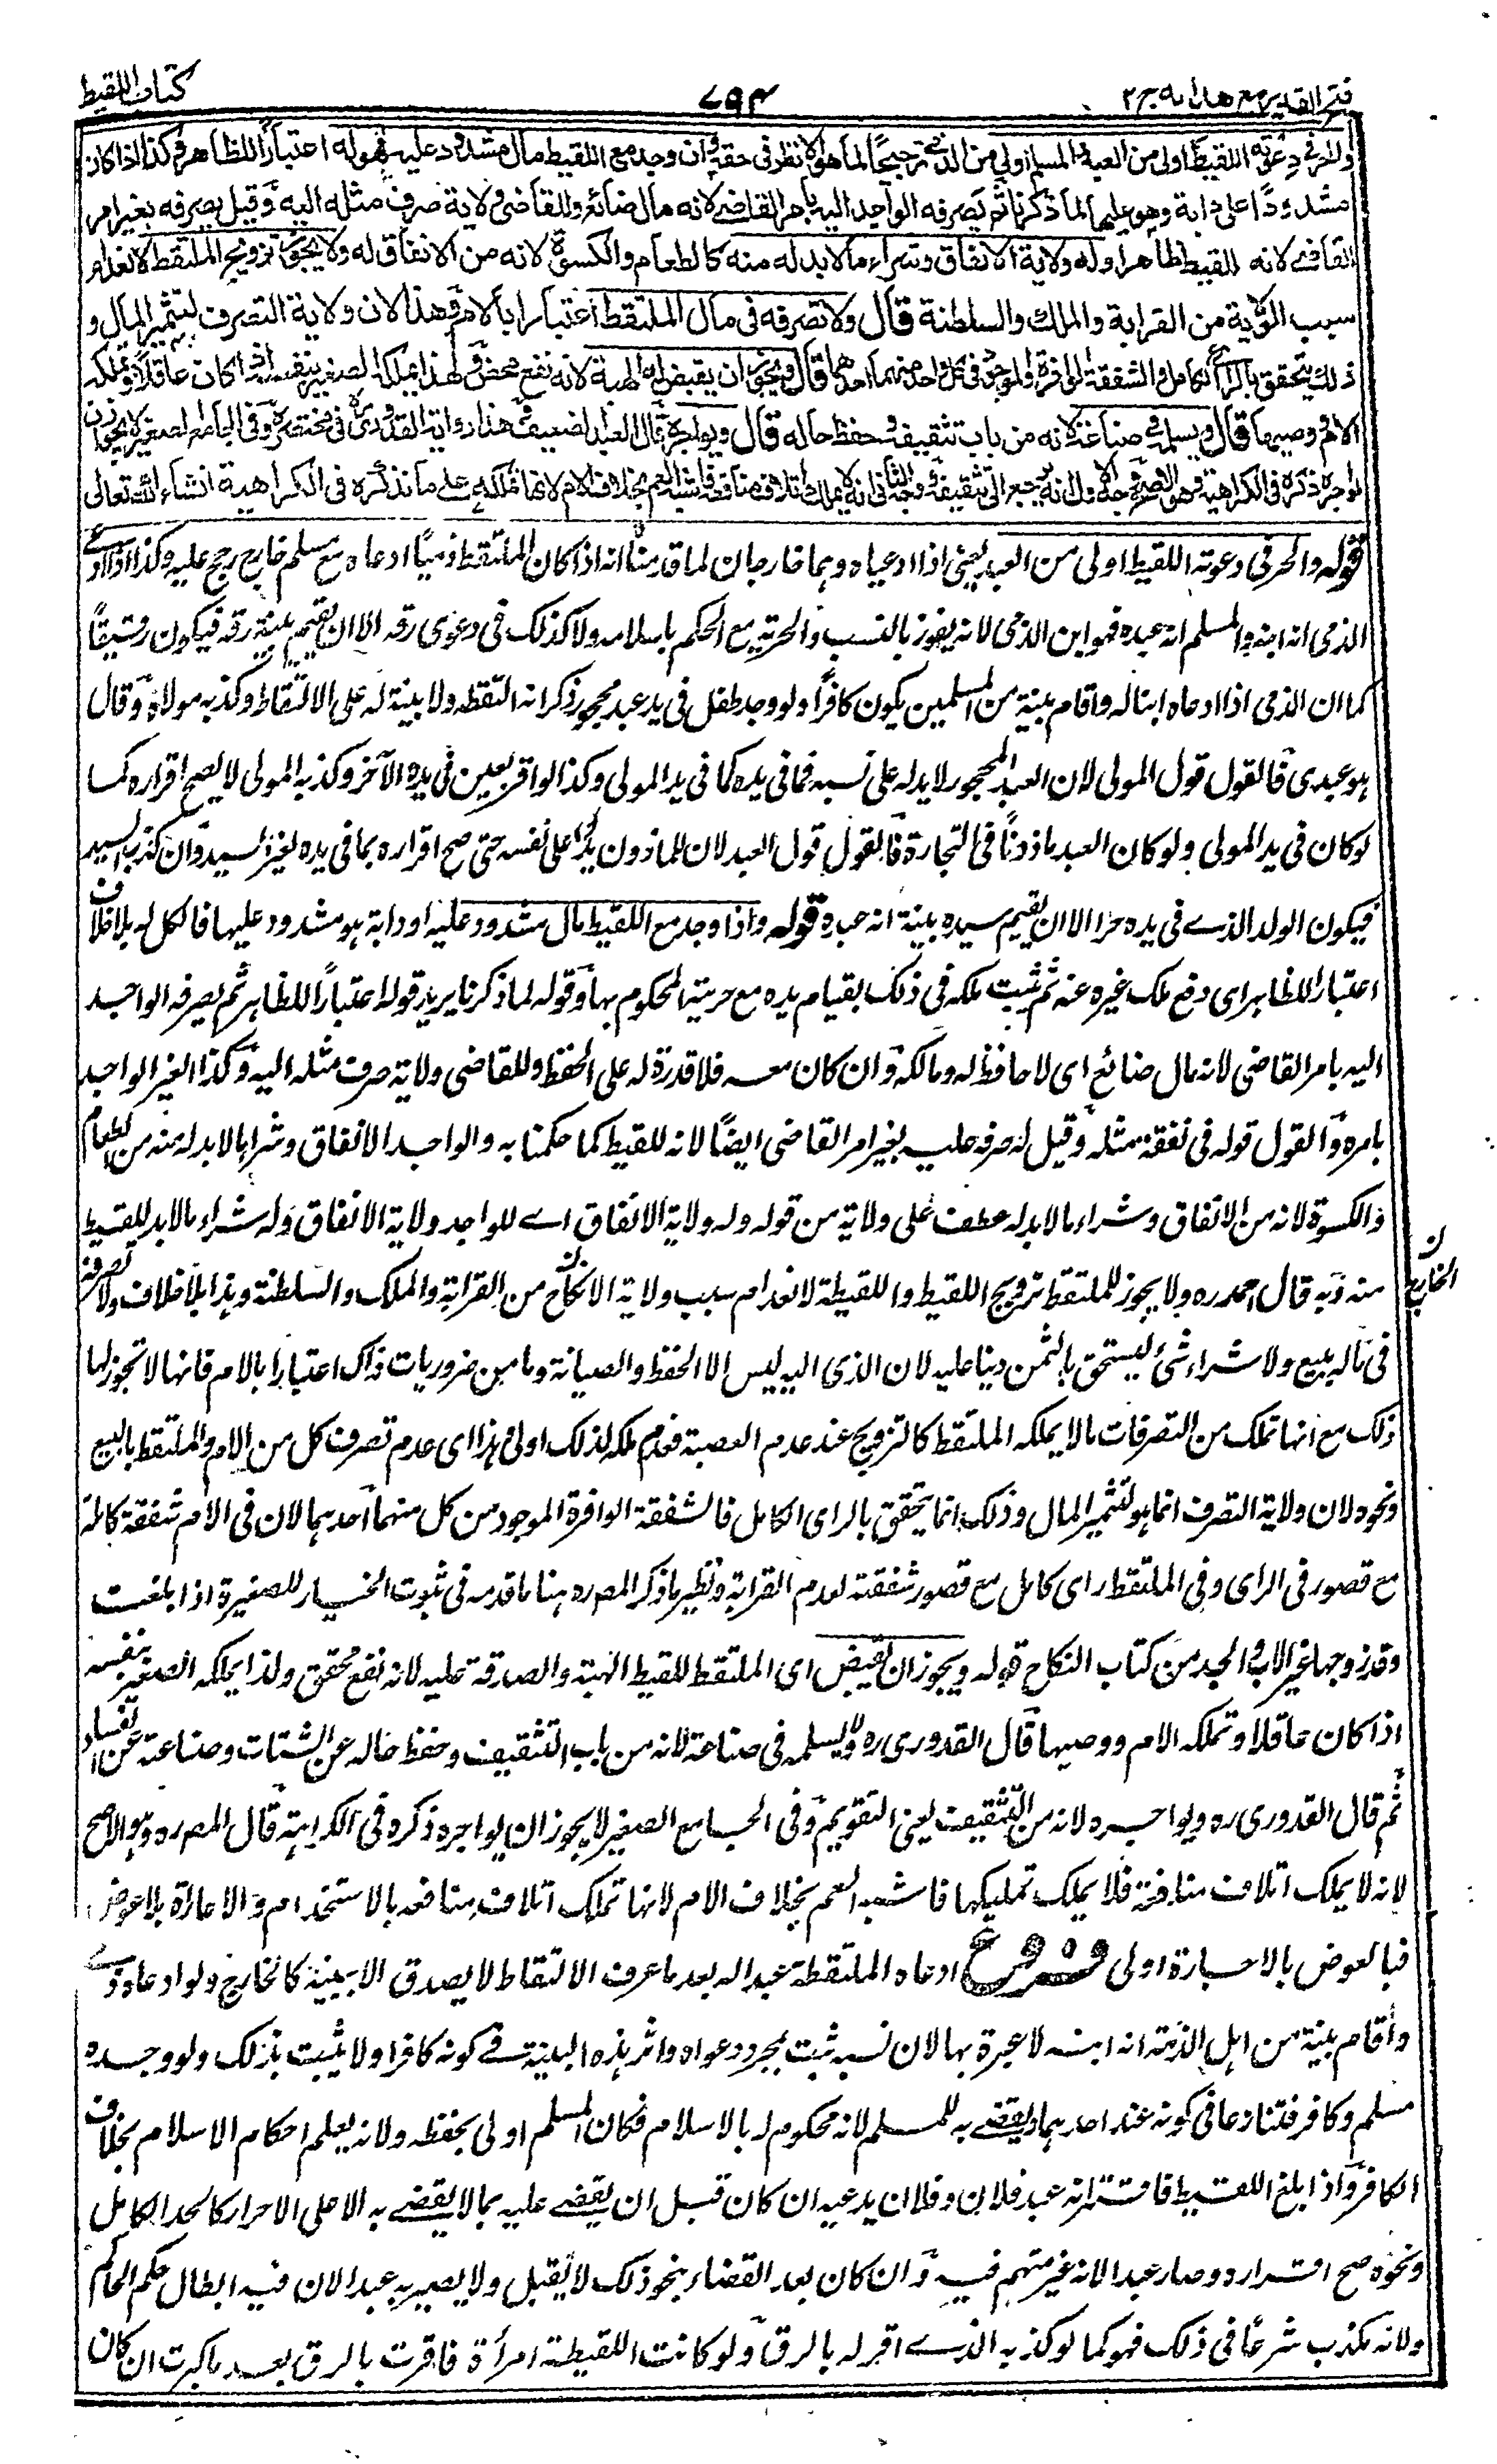 فتح القدير مع هدايه ج ٢
٧٩٤
كتاب اللقيط
والحر في دعوته اللقيط اولى من العبد والمسلم اولى من الذمي ترجيحًا لما هو الانظر في حقه وان وجد مع اللقيط مال مشدود عليه فهو له اعتبارًا للظاهر وكذا اذا كان
مشدودًا على دابة وهو عليها لما ذكرنا ثم يصرفه الواجد اليه بامر القاضي لانه مال ضائع وللقاضي ولاية صرف مثله اليه وقيل يصرفه بغير امر
القاضي لانه للقيط ظاهرا وله ولاية الانفاق وشراء ما لابد له منه كالطعام والكسوة لانه من الانفاق له ولا يجوز تزويج الملتقط لانعدام
سبب الولاية من القرابة والملك والسلطنة قال ولا تصرفه في مال الملتقط اعتبارا بالام وهذا لان ولاية التصرف لتثمير المال و
ذلك يتحقق بالرأي الكامل والشفقة الوافرة والموجود في كل واحد منهما احدهما قال ويجوز ان يقبض له الهبة لانه نفع محض ولهذا يملكه الصغير بنفسه اذا كان عاقلا وتملكه
الام ووصيها قال ويسلمه في صناعة لانه من باب تثقيفه وحفظ حاله قال ويواجره قال العبد الضعيف هذا رواية القدوري في مختصره وفي الجامع الصغير لا يجوز ان
يواجره ذكره في الكراهية وهو الاصح وجه الاول انه يرجع الى تثقيفه ووجه الثاني انه لا يملك اتلاف منافعه فاشبه العم بخلاف الام لانها تملكه على ما نذكره في الكراهية انشاء الله تعالى
قوله والحر في دعوته اللقيط اولى من العبد يعني اذا ادعياه وهما خارجان لما قدمنا انه اذا كان الملتقط ذميًا ادعاه مع مسلم خارج رجح عليه وكذا اذا ادعى
الذمي انه ابنه والمسلم انه عبده فهو ابن الذمي لانه يفوز بالنسب والحرية مع الحكم باسلامه ولا كذلك في دعوى رقه الا ان يقيم بينة رقه فيكون رقيقًا
كما ان الذمي اذا ادعاه ابنا له واقام بينة من المسلمين يكون كافرًا ولو وجد طفل في يد عبد محجور ذكر انه التقطه ولا بينة له على الالتقاط وكذبه مولاه وقال
هو عبدي فالقول قول المولى لان العبد المحجور لا يد له على نفسه فما في يده كما في يد المولى وكذا لو اقر بعين في يده لآخر وكذبه المولى لا يصح اقراره كما
لو كان في يد المولى ولو كان العبد ماذونًا في التجارة فالقول قول العبد لان للماذون يدا على نفسه حتى صح اقراره بما في يده لغير السيد وان كذبه السيد
فيكون الولد الذي في يده حرا الا ان يقيم سيده بينة انه عبده قوله واذا وجد مع اللقيط مال مشدود عليه او دابة هو مشدود عليها فالكل له بلا خلاف
اعتبارا للظاهر اي دفع ملك غيره عنه ثم ثبت ملكه في ذلك بقيام يده مع حريته المحكوم بها وقوله لما ذكرنا يريد قوله اعتبارًا للظاهر ثم يصرفه الواجد
اليه بامر القاضي لانه مال ضائع اي لا حافظ له ومالكه وان كان معه فلا قدرة له على الحفظ وللقاضي ولاية صرف مثله اليه وكذا لغير الواجد
بامره والقول قوله في نفقة مثله وقيل له صرفه عليه بغير امر القاضي ايضًا لانه للقيط كما حكمنا به وللواجد الانفاق وشراء ما لابد له منه من الطعام
والكسوة لانه من الانفاق وشراء ما لابد له عطف على ولاية من قوله وله ولاية الانفاق اي للواجد ولاية الانفاق وله شراء ما لابد للقيط
منه وبه قال احمد ره ولا يجوز للملتقط تزويج اللقيط واللقيطة لانعدام سبب ولاية الانكاح من القرابة والملك والسلطنة وهذا بلا خلاف ولا تصرفه
في ماله ببيع ولا شراء شئ ليستحق بالثمن دينا عليه لان الذي اليه ليس الا الحفظ والصيانة وما من ضروريات ذاك اعتبارا بالام فانها لا تجوز لها
ذلك مع انها تملك من التصرفات ما لا يملكه الملتقط كالتزويج عند عدم العصبة فعدم ملكه لذلك اولى وهذا اي عدم تصرف كل من الام والملتقط بالبيع
ونحوه لان ولاية التصرف انما هو لتثمير المال وذلك انما يتحقق بالراي الكامل فالشفقة الوافرة الموجود من كل منهما احدهما لان في الام شفقة كاملة
مع قصور في الراي وفي الملتقط راي كامل مع قصور شفقته لعدم القرابة ونظير ما ذكر المصره هنا ما قدمه في ثبوت الخيار للصغيرة اذا بلغت
وقد زوجها غير الاب والجد من كتاب النكاح قوله ويجوز ان يقبض اي الملتقط للقيط الهبة والصدقة عليه لانه نفع محقق ولذا يملكه الصغير بنفسه
اذا كان عاقلا وتملكه الام ووصيها قال القدوري ره ويسلمه في صناعة لانه من باب التثقيف وحفظ حاله عن الشتات وصناعته عن الفساد
ثم قال القدوري ره ويواجره لانه من التثقيف يعني التقويم وفي الجامع الصغير لا يجوز ان يواجره ذكره في الكراهية قال المصره وهو الاصح
لانه لا يملك اتلاف منافعه فلا يملك تمليكها فاشبه العم بخلاف الام لانها تملك اتلاف منافعه بالاستخدام والاعارة بلا عوض
فبالعوض بالاجارة اولى فروع ادعاه الملتقط عبدا له بعد ما عرف الالتقاط لا يصدق الا ببينة كالخارج ولو ادعاه ذمي
واقام بينة من اهل الذمة انه ابنه لا عبرة بها لان نسبه ثبت بمجرد دعواه واثر هذه البينة في كونه كافرا ولا يثبت بذلك ولو وجده
مسلم وكافر فتنازعا في كونه عند احدهما يقضى به للمسلم لانه محكوم له بالاسلام فكان المسلم اولى بحفظه ولانه يعلم احكام الاسلام بخلاف
الكافر واذا بلغ اللقيط فاقر انه عبد فلان وفلان يدعيه ان كان قبل ان يقضى عليه بما لا يقضى به الا على الاحرار كالحد الكامل
ونحوه صح اقراره وصار عبدا لانه غير متهم فيه وان كان بعد القضاء بنحو ذلك لا يقبل ولا يصير به عبدا لان فيه ابطال حكم الحاكم
ولانه مكذب شرعًا في ذلك فهو كما لو كذبه الذي اقر له بالرق ولو كانت اللقيطة امرأة فاقرت بالرق بعد ما كبرت ان كان
الخارج